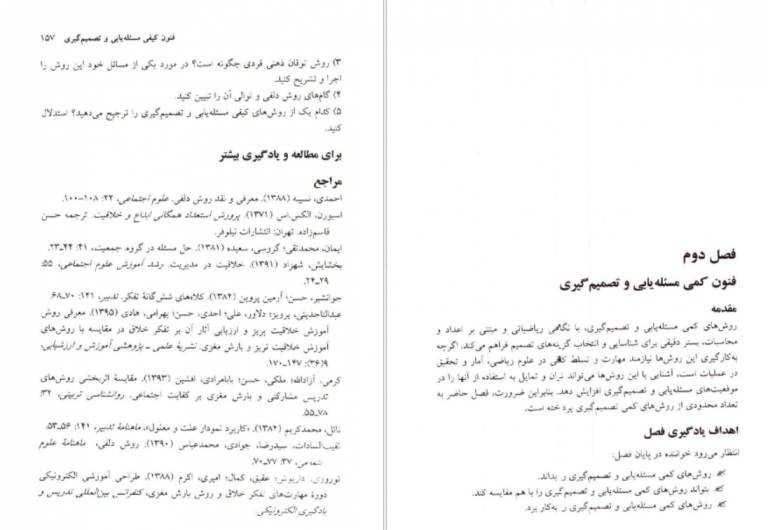 فنون کیفی مسئله‌یابی و تصمیم‌گیری ۱۵۷
۳) روش توفان ذهنی فردی چگونه است؟ در مورد یکی از مسائل خود این روش را
اجرا و تشریح کنید.
۴) گام‌های روش دلفی و توالی آن را تبیین کنید.
۵) کدام یک از روش‌های کیفی مسئله‌یابی و تصمیم‌گیری را ترجیح می‌دهید؟ استدلال
کنید.
برای مطالعه و یادگیری بیشتر
مراجع
احمدی، نسیبه (۱۳۸۸). معرفی و نقد روش دلفی. علوم اجتماعی، ۲۲: ۱۰۸-۱۰۰.
اسبورن، الکس.اس (۱۳۷۱). پرورش استعداد همگانی ابداع و خلاقیت. ترجمه حسن
قاسم‌زاده. تهران: انتشارات نیلوفر.
ایمان، محمدتقی؛ گروسی، سعیده (۱۳۸۱). حل مسئله در گروه. جمعیت، ۴۱: ۴۴-۲۳.
بخشایش، شهزاد (۱۳۹۱). خلاقیت در مدیریت. رشد آموزش علوم اجتماعی، ۵۵:
۲۹-۲۴.
جوانشیر، حسن؛ آرمین پروین (۱۳۸۲). کلاه‌های شش‌گانهٔ تفکر. تدبیر، ۱۴۱: ۷۰-۶۸.
عبدالتاجدینی، پرویز؛ دلاور، علی؛ احدی، حسن؛ بهرامی، هادی (۱۳۹۵). معرفی روش
آموزش خلاقیت پریز و ارزیابی آثار آن بر تفکر خلاق در مقایسه با روش‌های
آموزش خلاقیت تریز و بارش مغزی. نشریهٔ علمی - پژوهشی آموزش و ارزشیابی،
۹(۳۶): ۱۴۷-۱۷۰.
کرمی، آزادالله؛ ملکی، حسن؛ بابامرادی، افشین (۱۳۹۳). مقایسهٔ اثربخشی روش‌های
تدریس مشارکتی و بارش مغزی بر کفایت اجتماعی. روانشناسی تربیتی، ۳۲:
۷۸-۵۵.
نائل، محمدکریم (۱۳۸۲). «کاربرد نمودار علت و معلول»، ماهنامهٔ تدبیر، ۱۴۱: ۵۶-۵۳.
نقیب‌السادات، سیدرضا، جوادی، محمدعباس (۱۳۹۰). روش دلفی. ماهنامهٔ علوم
۳۷: ۷۷-۷۰.
نوروزی، داریوش؛ عقیق، کمال؛ امیری، اکرم (۱۳۸۸). طراحی آموزشی الکترونیکی
دورهٔ مهارت‌های تفکر خلاق و روش بارش مغزی، کنفرانس بین‌المللی تدریس و
یادگیری الکترونیکی.
فصل دوم
فنون کمی مسئله‌یابی و تصمیم‌گیری
مقدمه
روش‌های کمی مسئله‌یابی و تصمیم‌گیری، با نگاهی ریاضیاتی و مبتنی بر اعداد و
محاسبات، بستر دقیقی برای شناسایی و انتخاب گزینه‌های تصمیم فراهم می‌کند. اگرچه
به‌کارگیری این روش‌ها نیازمند مهارت و تسلط کافی در علوم ریاضی، آمار و تحقیق
در عملیات است، آشنایی با این روش‌ها می‌تواند توان و تمایل به استفاده از آنها را در
موقعیت‌های مسئله‌یابی و تصمیم‌گیری افزایش دهد. بنابراین ضرورت، فصل حاضر به
تعداد محدودی از روش‌های کمی تصمیم‌گیری پرداخته است.
اهداف یادگیری فصل
انتظار می‌رود خواننده در پایان فصل:
روش‌های کمی مسئله‌یابی و تصمیم‌گیری را بداند.
بتواند روش‌های کمی مسئله‌یابی و تصمیم‌گیری را با هم مقایسه کند.
روش‌های کمی مسئله‌یابی و تصمیم‌گیری را به‌کار برد.